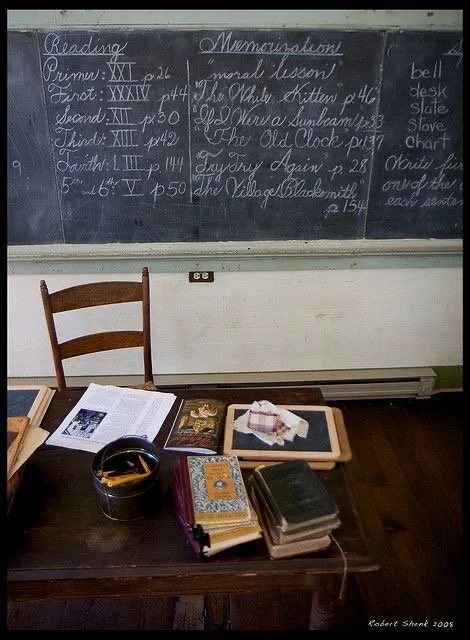 Reading
Primer: XXI p26
First: XXXIV p44
Second: XII p30
Third: XIII p42
Fourth: LIII p144
5th and 6th: V p50
Memorization
"moral lesson"
"The White Kitten" p46
"If I Were a Sunbeam" p33
"The Old Clock" p137
"Try Try Again p. 28
The Village Blacksmith
p. 154
bell
desk
slate
stove
chart
Write
one of the
each senten
9
Robert Shenk 2008